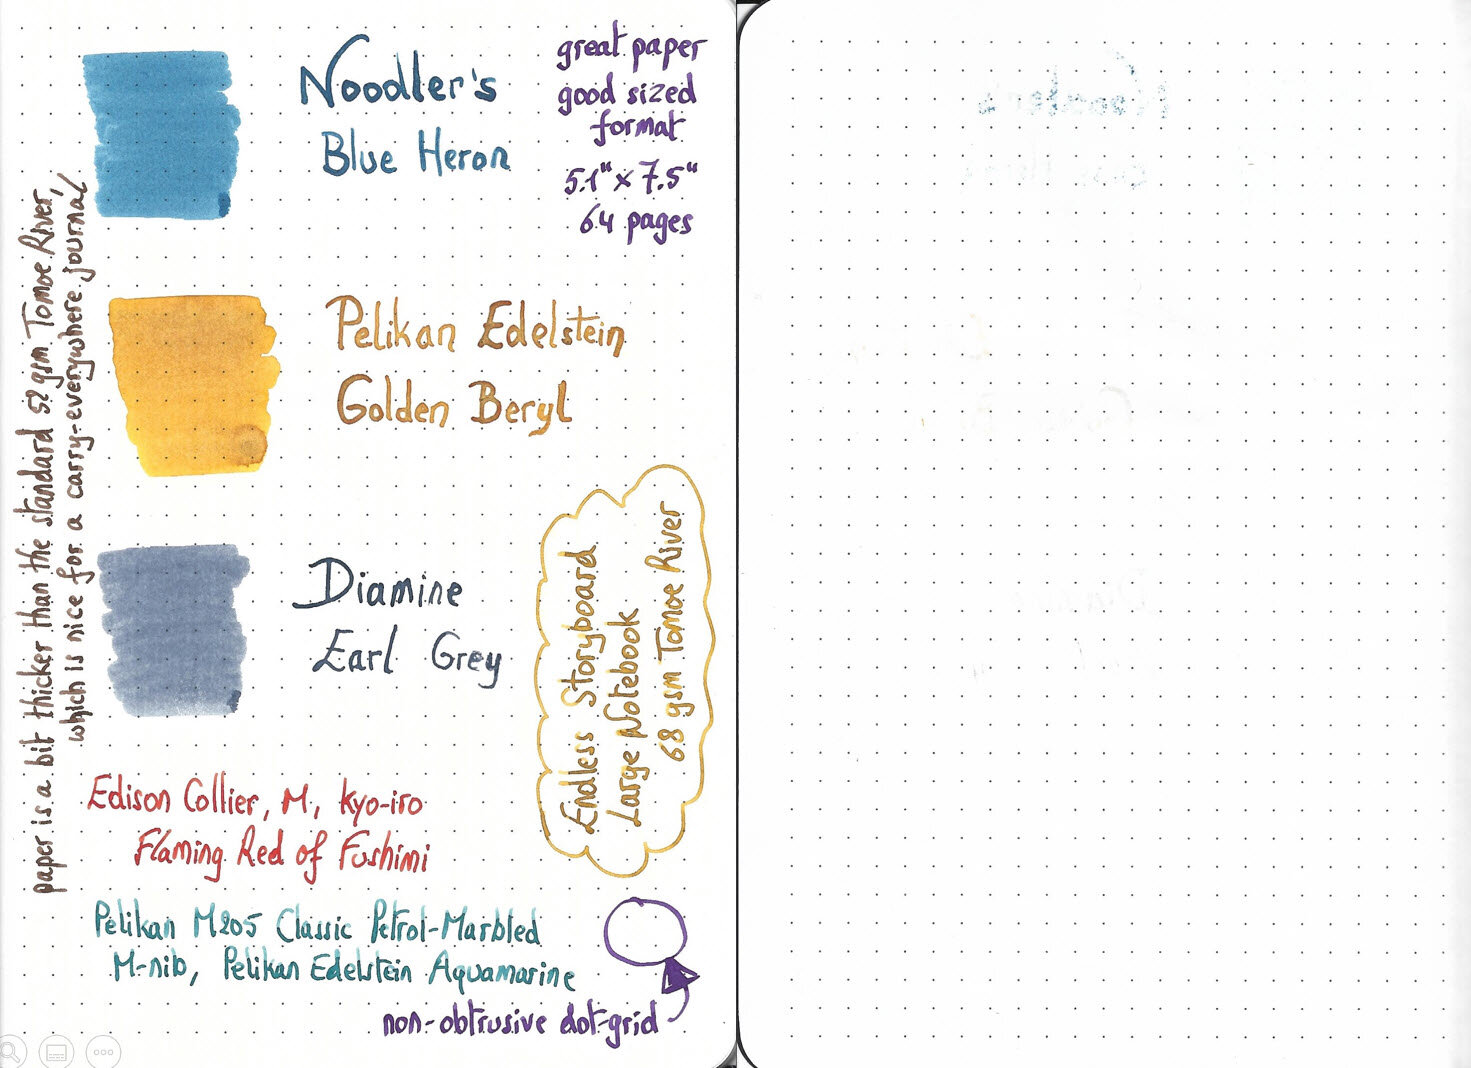 Noodler's
Blue Heron
great paper
good sized
format
5.1" x 7.5"
64 pages
paper is a bit thicker than the standard 52 gsm Tomoe River,
which is nice for a carry-everywhere journal
Pelikan Edelstein
Golden Beryl
Diamine
Earl Grey
Endless Storyboard
Large Notebook
68 gsm Tomoe River
Edison Collier, M, kyo-iro
Flaming Red of Fushimi
Pelikan M205 Classic Petrol-Marbled
M-nib, Pelikan Edelstein Aquamarine
non-obtrusive dot-grid